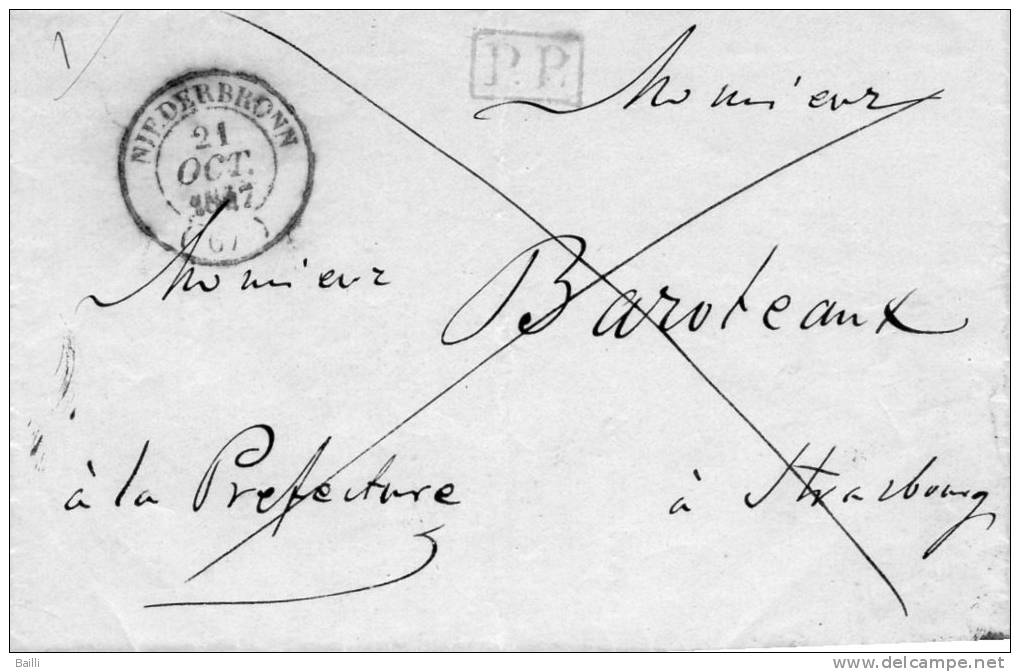 P.P.
NIEDERBRONN
21
OCT.
1847
(67)
Monsieur
Monsieur
Baroteaux
à la Prefecture
à Strasbourg
Bailli
www.delcampe.net